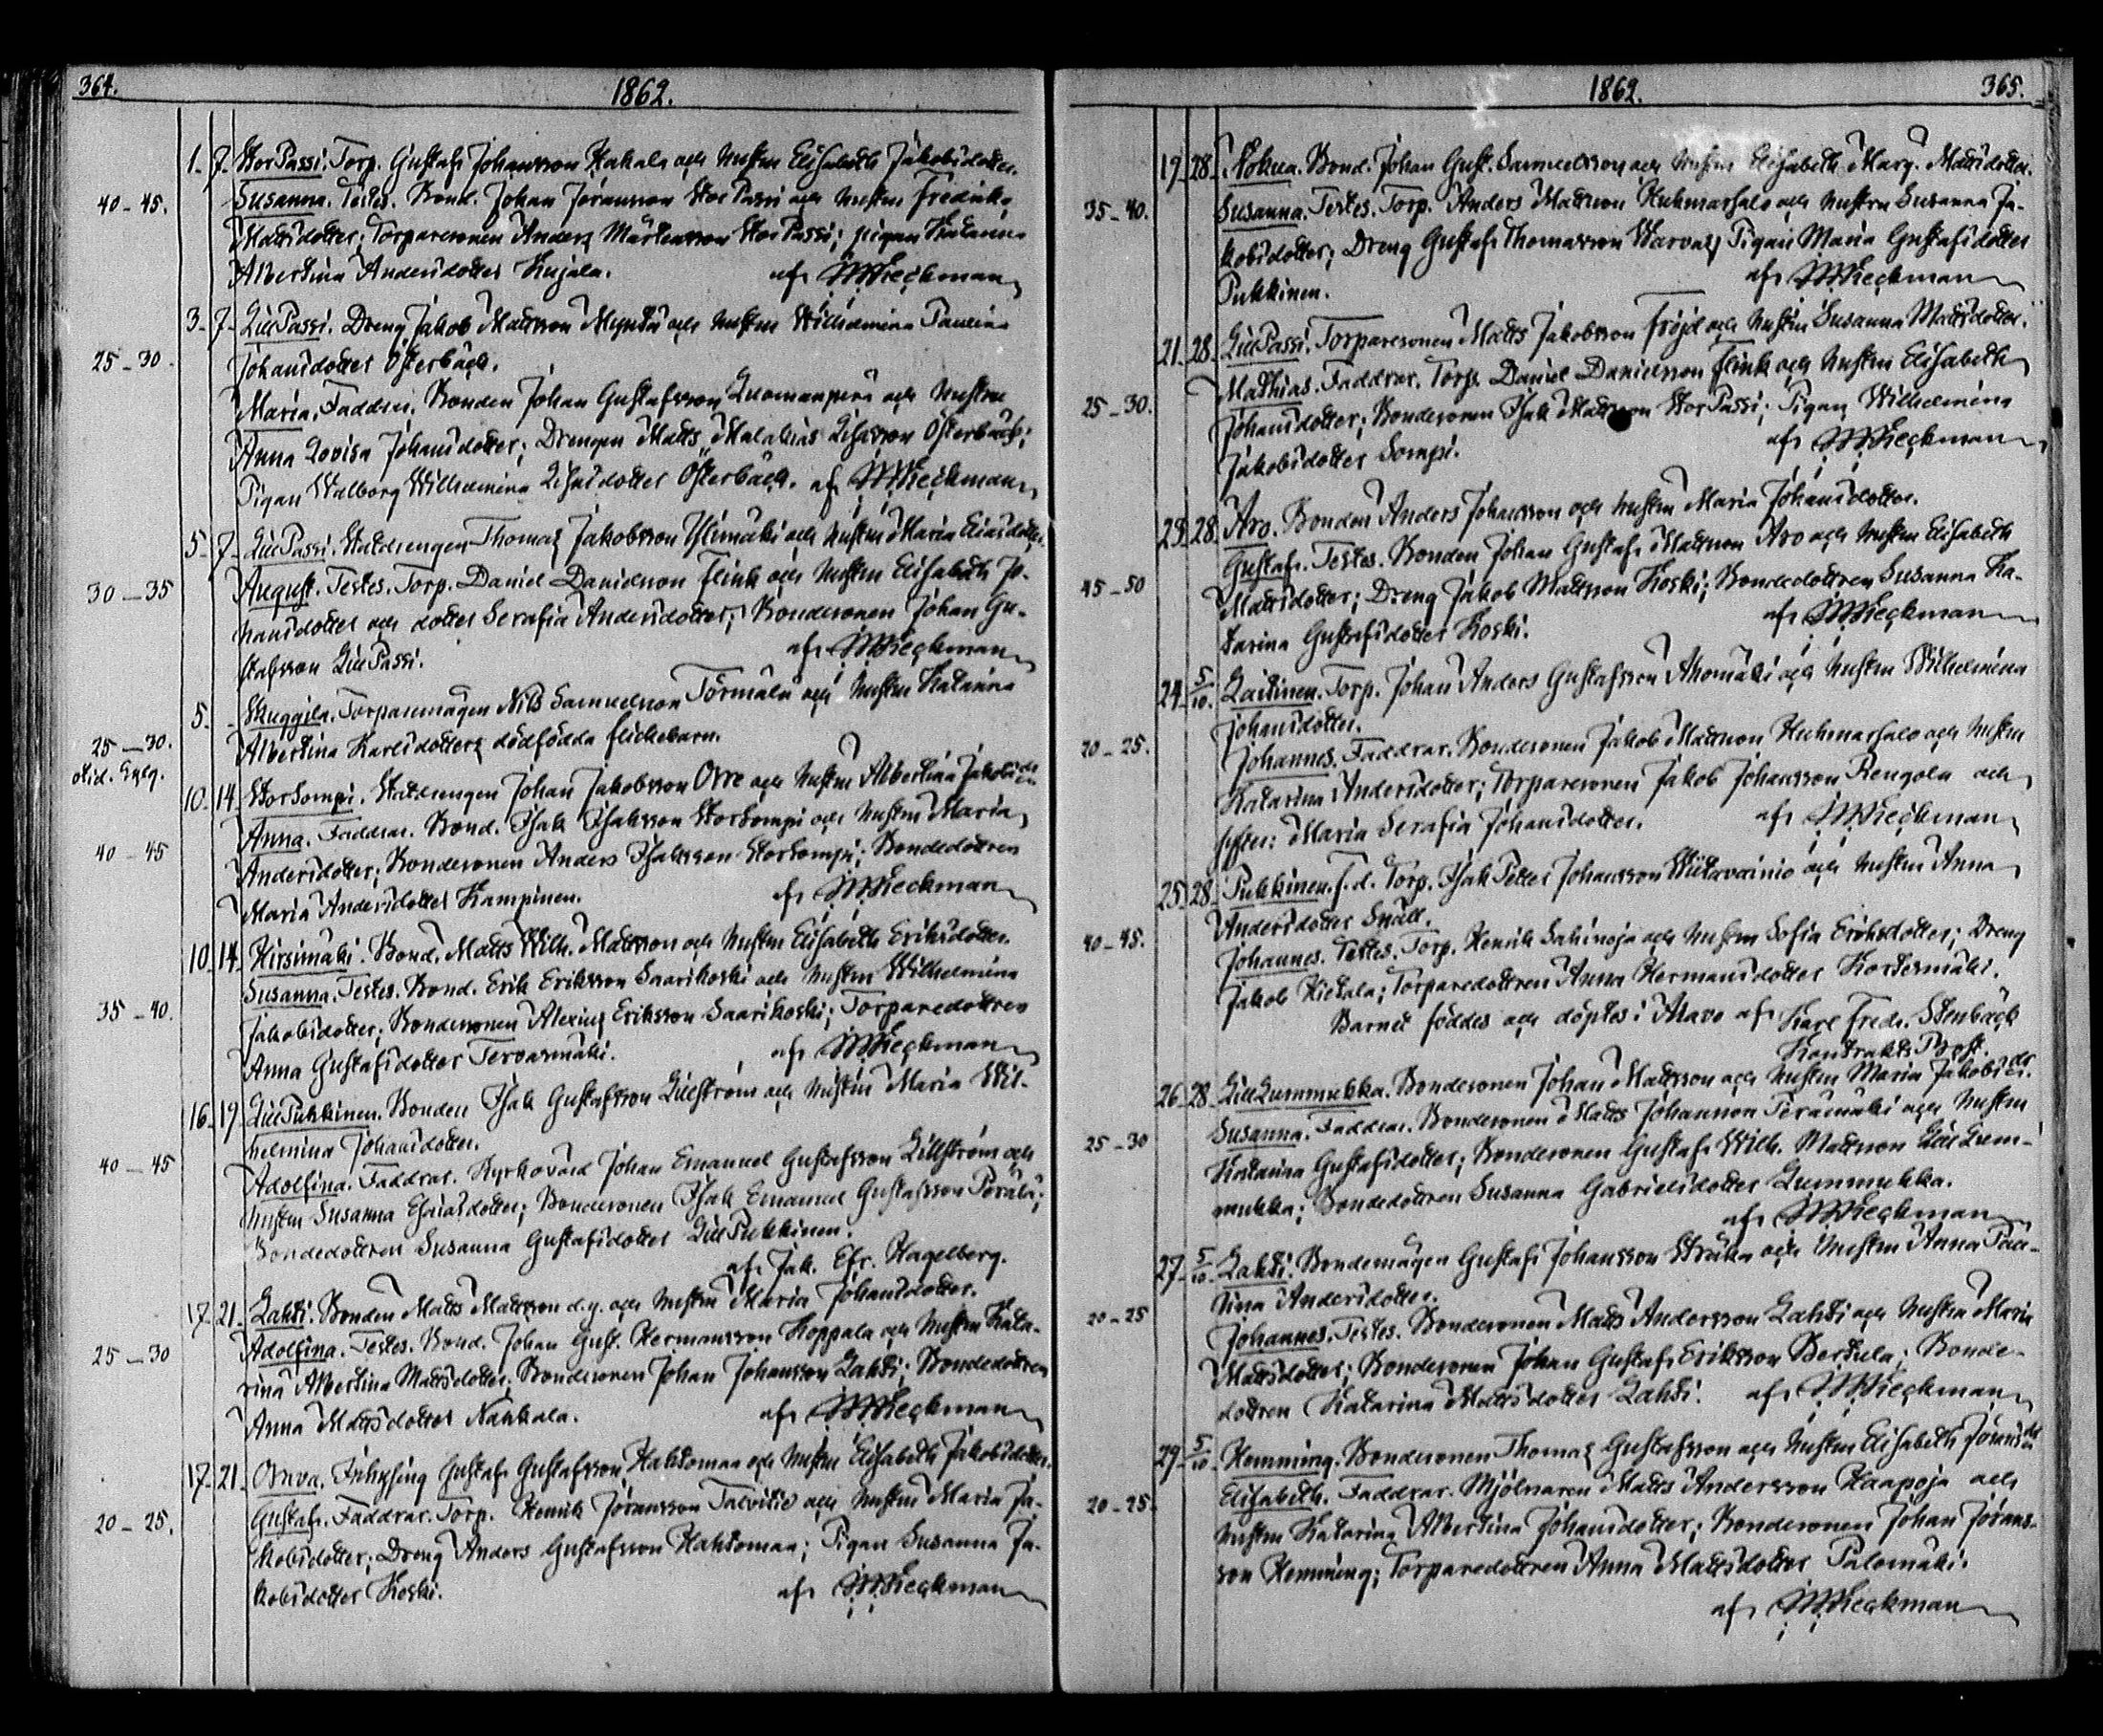 364.
1862.
1. 7. StorPassi. Torp. Gustaf Johansson Kakala och hustru Elisabeth Jakobsdotter.
40-45. Susanna. Testes. Bond. Johan Jöransson StorPassi och hustru Fredrika
Mattsdotter; Torparesonen Anders Mårtensson StorPassi; pigan Katarina
Albertina Andersdotter Kujala. af
3. 7. LillPassi. Dreng Jakob Mattsson Myntti och hustru Wilhelmina Paulina
25-30. Johansdotter Österback.
Maria. Faddrar. Bonden Johan Gustafsson Luomanperä och hustru
Anna Lovisa Johansdotter; Drengen Matts Malakias Esaisson Österback;
Pigan Walborg Wilhelmina Esaisdotter Österback. af
5. 7. LillPassi. Statdrengen Thomas Jakobsson Ylimäki och hustru Maria Eliasdotter.
30-35 August. Testes. Torp. Daniel Danielsson Flink och hustru Elisabeth Jo-
hansdotter och dotter Serafia Andersdotter; Bondesonen Johan Gu-
stafsson LillPassi. af
5. - Skuggila. Torparemågen Nils Samuelsson Törmälä och hustru Katarina
25-30. Albertina Karlsdotters dödfödda flickebarn.
10. 14. Storsompi. Statdrengen Johan Jakobsson Orre och hustru Albertina Jakobsdr
40-45 Anna. Faddrar. Bond. Isak Isaksson Storsompi och hustru Maria
Andersdotter; Bondesonen Anders Isaksson Storsompi; Bondedottren
Maria Andersdotter Kampinen. af
10. 14. Hirsimäki. Bond. Matts Wilh. Mattsson och hustru Elisabeth Eriksdotter.
35-40. Susanna. Testes. Bond. Erik Eriksson Saarikoski och hustru Wilhelmina
Jakobsdotter; Bondesonen Alexius Eriksson Saarikoski; Torparedottren
Anna Gustafsdotter Tervasmäki. af
16. 19. LillPukkinen. Bonden Isak Gustafsson Lillström och hustru Maria Wil-
helmina Johansdotter.
40-45 Adolfina. Faddrar. Kyrkovärd Johan Emanuel Gustafsson Lillström och
hustru Susanna Esaiasdotter; Bondesonen Isak Emanuel Gustafsson Perälä;
Bondedottren Susanna Gustafsdotter LillPukkinen.
af Jak. Efr. Hagelberg.
17. 21. Lahti. Bonden Matts Mattsson d.y. och hustru Maria Johansdotter.
25-30 Adolfina. Testes. Bond. Johan Gust. Hermansson Koppala och hustru Kata-
rina Albertina Mattsdotter; Bondesonen Johan Johansson Lahti; Bondedottren
Anna Mattsdotter Karhala. af
17. 21. Orava. Inhysing Gustaf Gustafsson Hahtomaa och hustru Elisabeth Jakobsdotter.
20-25. Gustaf. Faddrar. Torp. Henrik Jöransson Talvitie och hustru Maria Ja-
kobsdotter; Dreng Anders Gustafsson Hahtomaa; Pigan Susanna Ja-
kobsdotter Koski. af
1862.
365.
19. 28. Nokua. Bond. Johan Gust. Samuelsson och hustru Elisabeth Marg. Mattsdotter.
35-40. Susanna. Testes. Torp. Anders Mattsson Huhmarsalo och hustru Susanna Ja-
kobsdotter; Dreng Gustaf Thomasson Warvas; Pigan Maria Gustafsdotter
Pukkinen. af
21. 28. LillPassi. Torparesonen Matts Jakobsson Fröjd och hustru Susanna Mattsdotter.
25-30. Mathias. Faddrar. Torp. Daniel Danielsson Flink och hustru Elisabeth
Johansdotter; Bondesonen Isak Mattsson StorPassi; Pigan Wilhelmina
Jakobsdotter Sompi. af
23. 28. Aro. Bonden Anders Johansson och hustru Maria Johansdotter.
45-50 Gustaf. Testes. Bonden Johan Gustaf Mattsson Aro och hustru Elisabeth
Mattsdotter; Dreng Jakob Mattsson Koski; Bondedottren Susanna Ka-
tarina Gustafsdotter Koski. af
24. 5/10. Laitinen. Torp. Johan Anders Gustafsson Ahomäki och hustru Wilhelmina
Johansdotter.
20-25. Johannes. Faddrar. Bondesonen Jakob Mattsson Huhmarsalo och hustru
Katarina Andersdotter; Torparesonen Jakob Johansson Rengola och
syster: Maria Serafia Johansdotter. af
25. 28. Pukkinen. f.d. Torp. Isak Petter Johansson Wiitavainio och hustru Anna
Andersdotter Snäll.
40-45. Johannes. Testes. Torp. Henrik Sahinoja och hustru Sofia Eriksdotter; Dreng
Jakob Hietala; Torparedottren Anna Hermansdotter Kortesmäki.
Barnet föddes och döptes i Alavo af Karl Fredr. Stenbäck
Kontrakts Prost.
26. 28. LillLummukka. Bondesonen Johan Mattsson och hustru Maria Jakobsdr.
25-30 Susanna. Faddrar. Bondesonen Matts Johansson Perämäki och hustru
Katarina Gustafsdotter; Bondesonen Gustaf Wilh. Mattsson LillLum-
mukka; Bondedottren Susanna Gabrielsdotter Lummukka.
af
27. 5/10. Lahti. Bondemågen Gustaf Johansson Ströka och hustru Anna Pau-
lina Andersdotter.
20-25 Johannes. Testes. Bondesonen Matts Andersson Lahti och hustru Maria
Mattsdotter; Bondesonen Johan Gustaf Eriksson Bertula; Bonde-
dottren Katarina Mattsdotter Lahti. af
29. 5/10. Hemming. Bondesonen Thomas Gustafsson och hustru Elisabeth Jöransdr
20-25. Elisabeth. Faddrar. Mjölnaren Matts Andersson Haapoja och
hustru Katarina Albertina Johansdotter; Bondesonen Johan Jörans-
son Hemming; Torparedottren Anna Mattsdotter Palomäki.
af